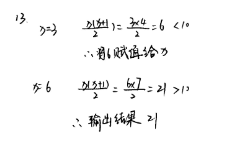 13.
x=3  x(x+1)/2 = 3×4/2 = 6 <10
∴ 将6赋值给x
x=6  x(x+1)/2 = 6×7/2 = 21 >10
∴ 输出结果 21